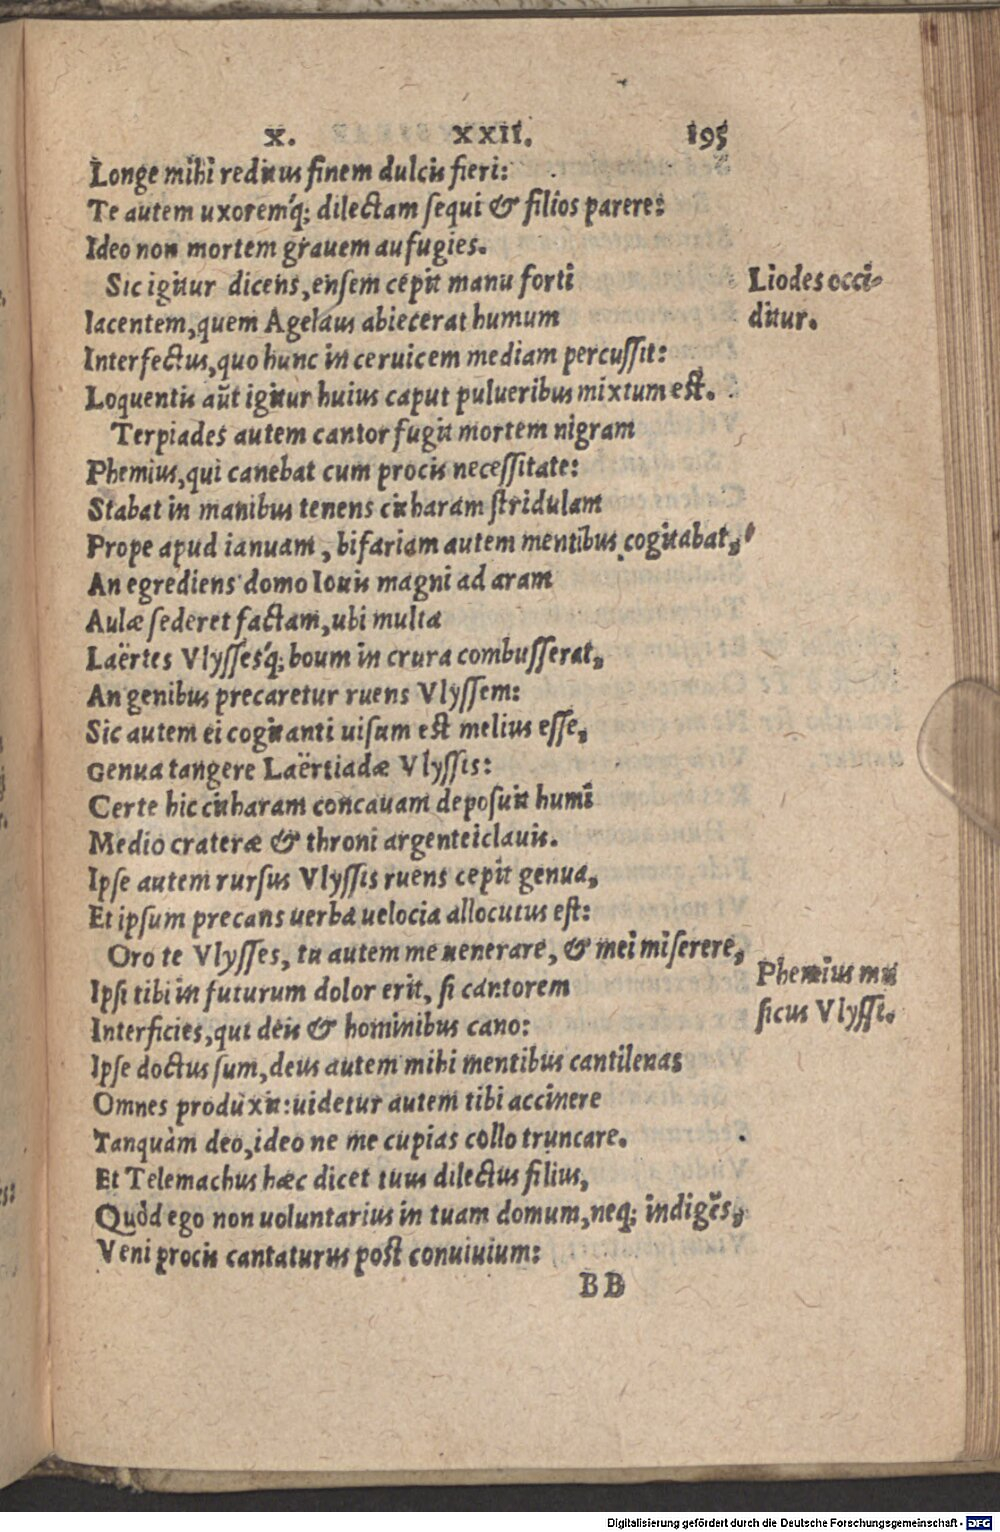 X. XXII. 195
Longe mihi reditus finem dulcis fieri:
Te autem uxoremq́; dilectam sequi & filios parere:
Ideo non mortem grauem aufugies.
Sic igitur dicens, ensem cepit manu forti
Iacentem, quem Agelaus abiecerat humum
Interfectus, quo hunc in ceruicem mediam percussit:
Loquentis aūt igitur huius caput pulueribus mixtum est.
Liodes occi-
ditur.
Terpiades autem cantor fugit mortem nigram
Phemius, qui canebat cum procis necessitate:
Stabat in manibus tenens citharam stridulam
Prope apud ianuam, bifariam autem mentibus cogitabat,
An egrediens domo Iouis magni ad aram
Aulæ sederet factam, ubi multa
Laërtes Vlyssesq́; boum in crura combusserat,
An genibus precaretur ruens Vlyssem:
Sic autem ei cogitanti uisum est melius esse,
Genua tangere Laërtiadæ Vlyssis:
Certe hic citharam concauam deposuit humi
Medio crateræ & throni argentei clauis.
Ipse autem rursus Vlyssis ruens cepit genua,
Et ipsum precans uerba uelocia allocutus est:
Oro te Vlysses, tu autem me uenerare, & mei miserere,
Ipsi tibi in futurum dolor erit, si cantorem
Interficies, qui deis & hominibus cano:
Phemius mu
sicus Vlyssi.
Ipse doctus sum, deus autem mihi mentibus cantilenas
Omnes produxit: uidetur autem tibi accinere
Tanquàm deo, ideo ne me cupias collo truncare.
Et Telemachus hæc dicet tuus dilectus filius,
Quòd ego non uoluntarius in tuam domum, neq; indigēs,
Veni procis cantaturus post conuiuium:
BB
Digitalisierung gefördert durch die Deutsche Forschungsgemeinschaft - DFG